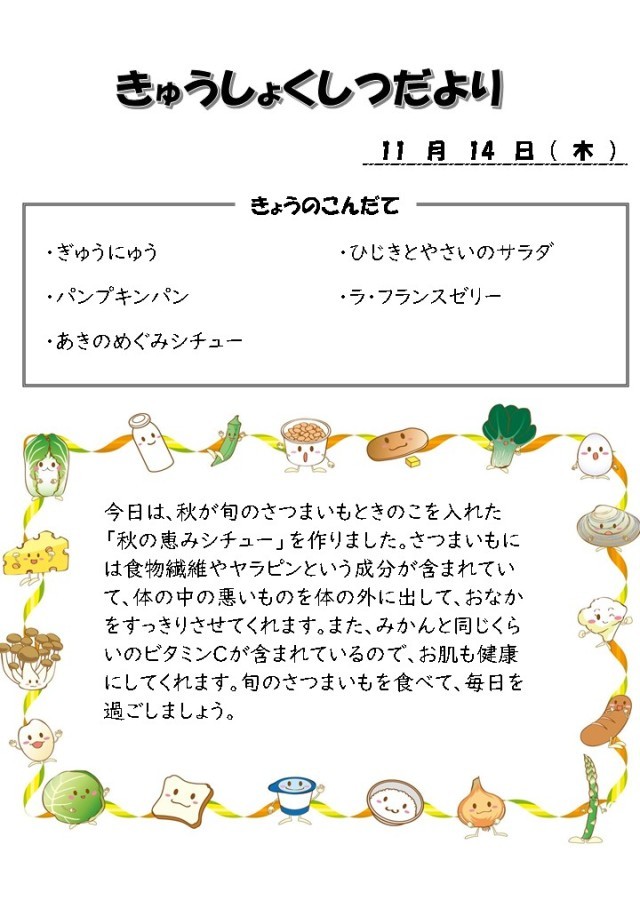 きゅうしょくしつだより
11 月 14 日 ( 木 )
きょうのこんだて
・ぎゅうにゅう
・パンプキンパン
・あきのめぐみシチュー
・ひじきとやさいのサラダ
・ラ・フランスゼリー
今日は、秋が旬のさつまいもときのこを入れた
「秋の恵みシチュー」を作りました。さつまいもに
は食物繊維やヤラピンという成分が含まれてい
て、体の中の悪いものを体の外に出して、おなか
をすっきりさせてくれます。また、みかんと同じくら
いのビタミンCが含まれているので、お肌も健康
にしてくれます。旬のさつまいもを食べて、毎日を
過ごしましょう。